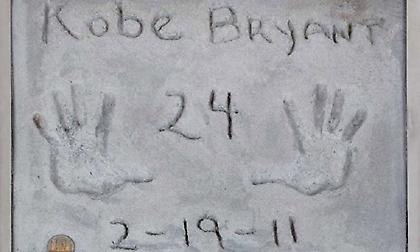 Kobe Bryant
24
2-19-11